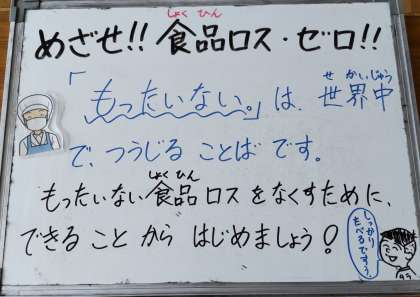 しょく ひん
めざせ!! 食品ロス・ゼロ!!
せ かいじゅう
「もったいない。」は、世界中
で、つうじる ことば です。
しょく ひん
もったいない食品 ロス をなくすために、
できる こと から はじめましょう!
しっかり
たべるですぅ